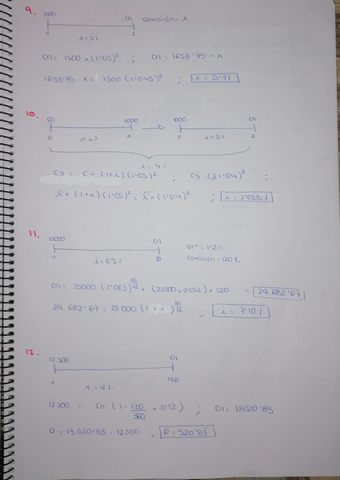 9.
1500 Cn Comisión = X
0 2
i = 5%
Cn = 1500 × (1'05)² ; Cn = 1653'75 - x
1653'75 - x = 1500 (1'045)² ; x = 15'71
10.
C0 1000 1000 Cn
0 1 0 2
i = 5%
i = 4%
C3 = C × (1+i) (1'05)² ;
(1+i) (1'05)² ;
11.
25000 Cn
0
i = 6'5% Comisión = 120 €
+ (25000 × 0'012) + 120 = 29.682'67
29.682'67 = 25.000 (1+i) ; i = 7'10%
12.
12.500 Cn
0 120
i = 12%
12.500 = Cn (1 - 120/360 × 0'12) ; Cn = 13020'83
D = 13.020'83 - 12500 ; D = 520'83